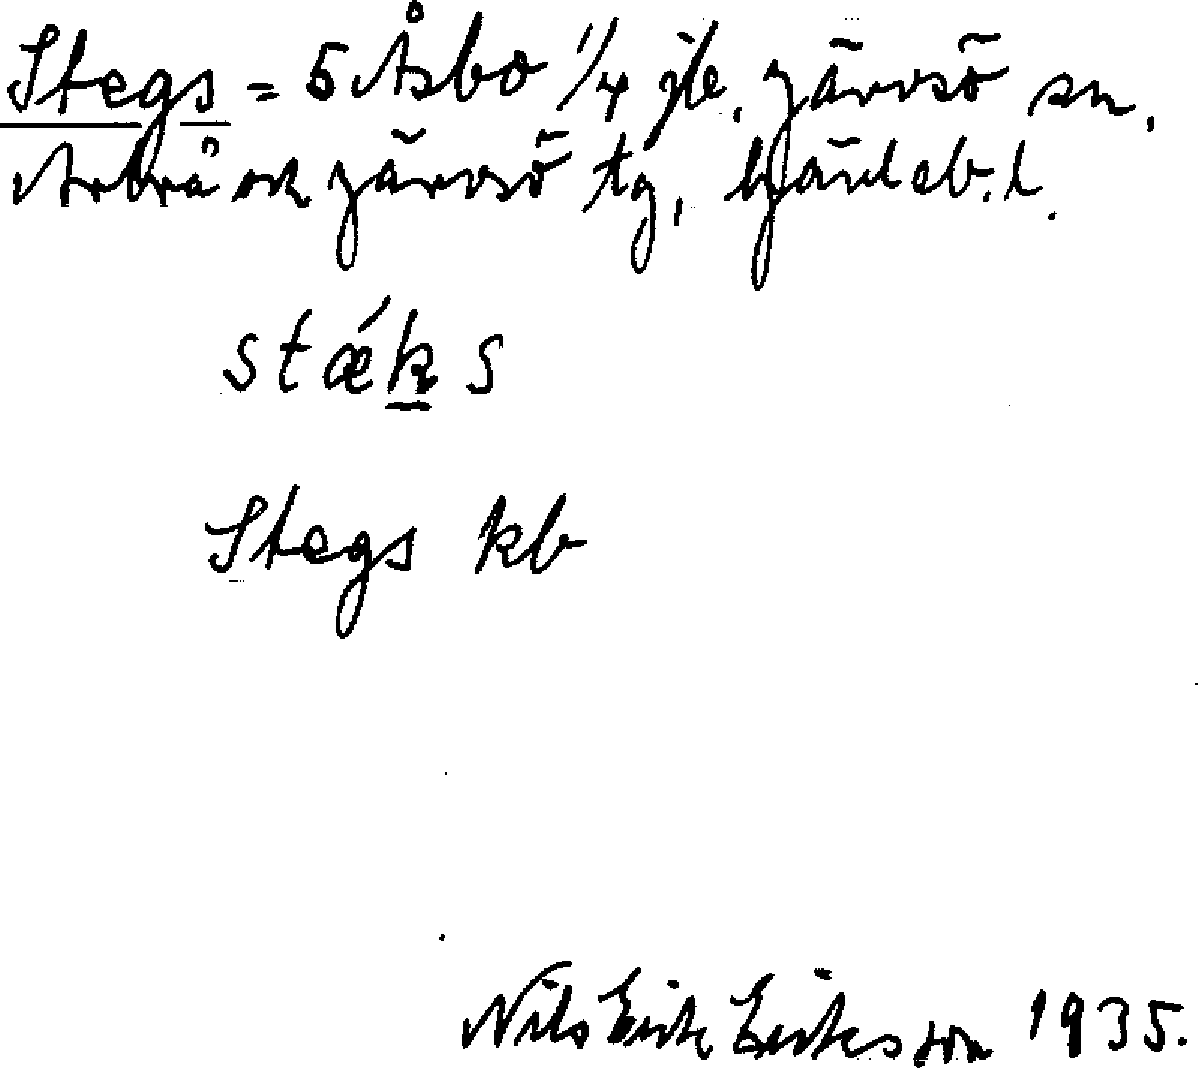 Stegs = 5 Åsbo 1/4 jb. Järvsö sn,
Arbrå och Järvsö tg, Gävleb. l.
stǽks
Stegs kb
Nils Erik Eriksson 1935.